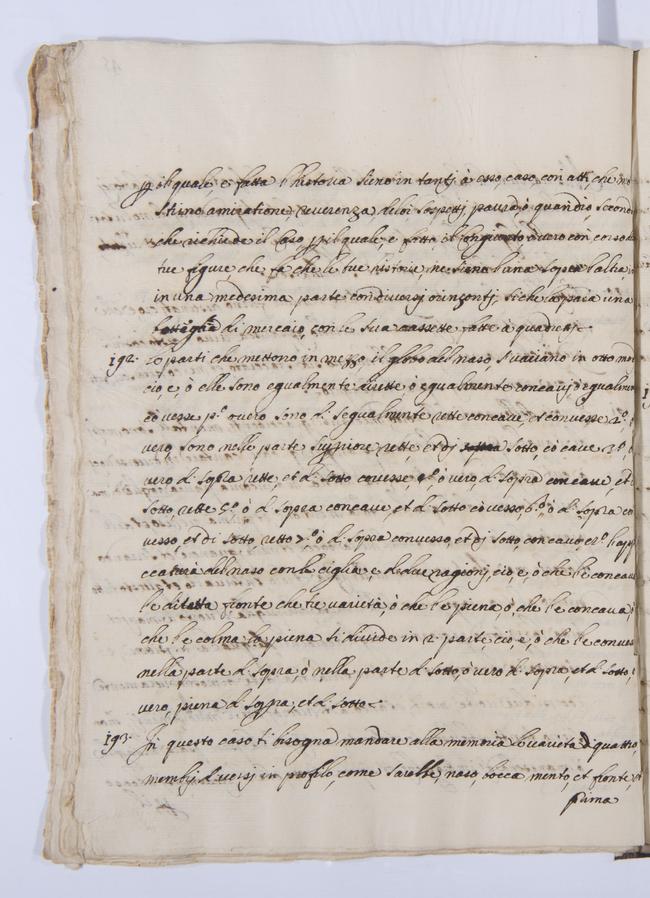 p il quale, è fatta l'historia sieno intantj à esso, caso, con attj, che mo
strino amiratione, reverenza, dolor sospettj, paura, ò quandio, second
che richiede il caso p il quale, e fatto il congiunto, overo concorso d
tue figure che fà che le tue historie, ne sieno l'una sopra l'altra,
in una medesima parte con diversj orizontj, siche la paia una
bottegha di merciaio, con le sua cassette fatte à quadrettj.
192. Le parti che mettono in mezzo il globo del naso, si variano in otto mo
cio, e, ò elle sono egualmente dirette, ò egualmente concavj, ò egualmen
covesse p.º overo sono d. segualmente rette concave, et convesse 2.º,
vero sono nelle parte superiore rette, et dj sotto, cocave 3.º, ò
vero d. sopra rette, et d. sotto covesse 4.º ò vero, d. sopra concave, et d
sotto, rette 5.º ò d. sopra concave, et d. sotto covesso, 6.º, ò d. sopra co
vesso, et di sotto, retto 7.º, ò d. sopra convesso, et dj sotto, concavo, 8.º l'app
iccatura del naso con le ciglia, e, di due ragionj, cio, e, ò che l'è concava
l'è diretta fronte che tre varietà, ò che l'e piena, ò che l'è concava, ò
che l'e colma, la piena si divide in 2 parte, cio, e, ò che l'e convess
nella parte d. sopra, ò nella parte d. sotto, ò vero d. sopra, et d. sotto, ò
vero, piena d. sopra, et d. sotto.
193. In questo caso ti bisogna mandare alla memoria le varietà, d quattro,
membrj, diversj in profilo, come sarebbe, naso, bocca, mento, et fronte, et
prima